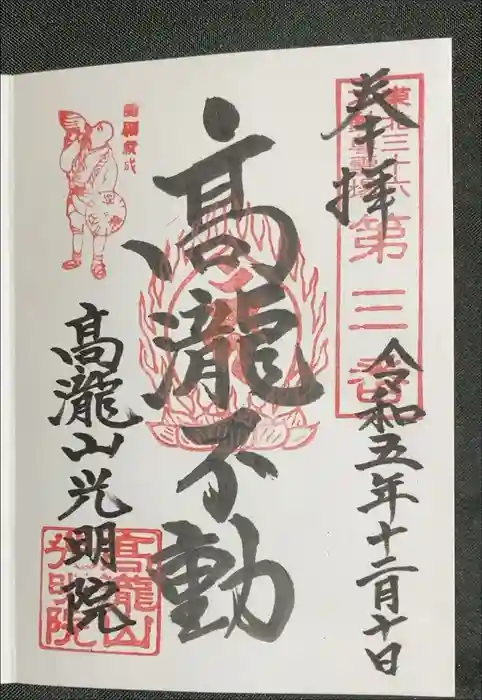 奉拝
東北三十六
第三番
令和五年十二月十日
髙瀧不動
髙瀧山光明院
髙瀧山
光明院